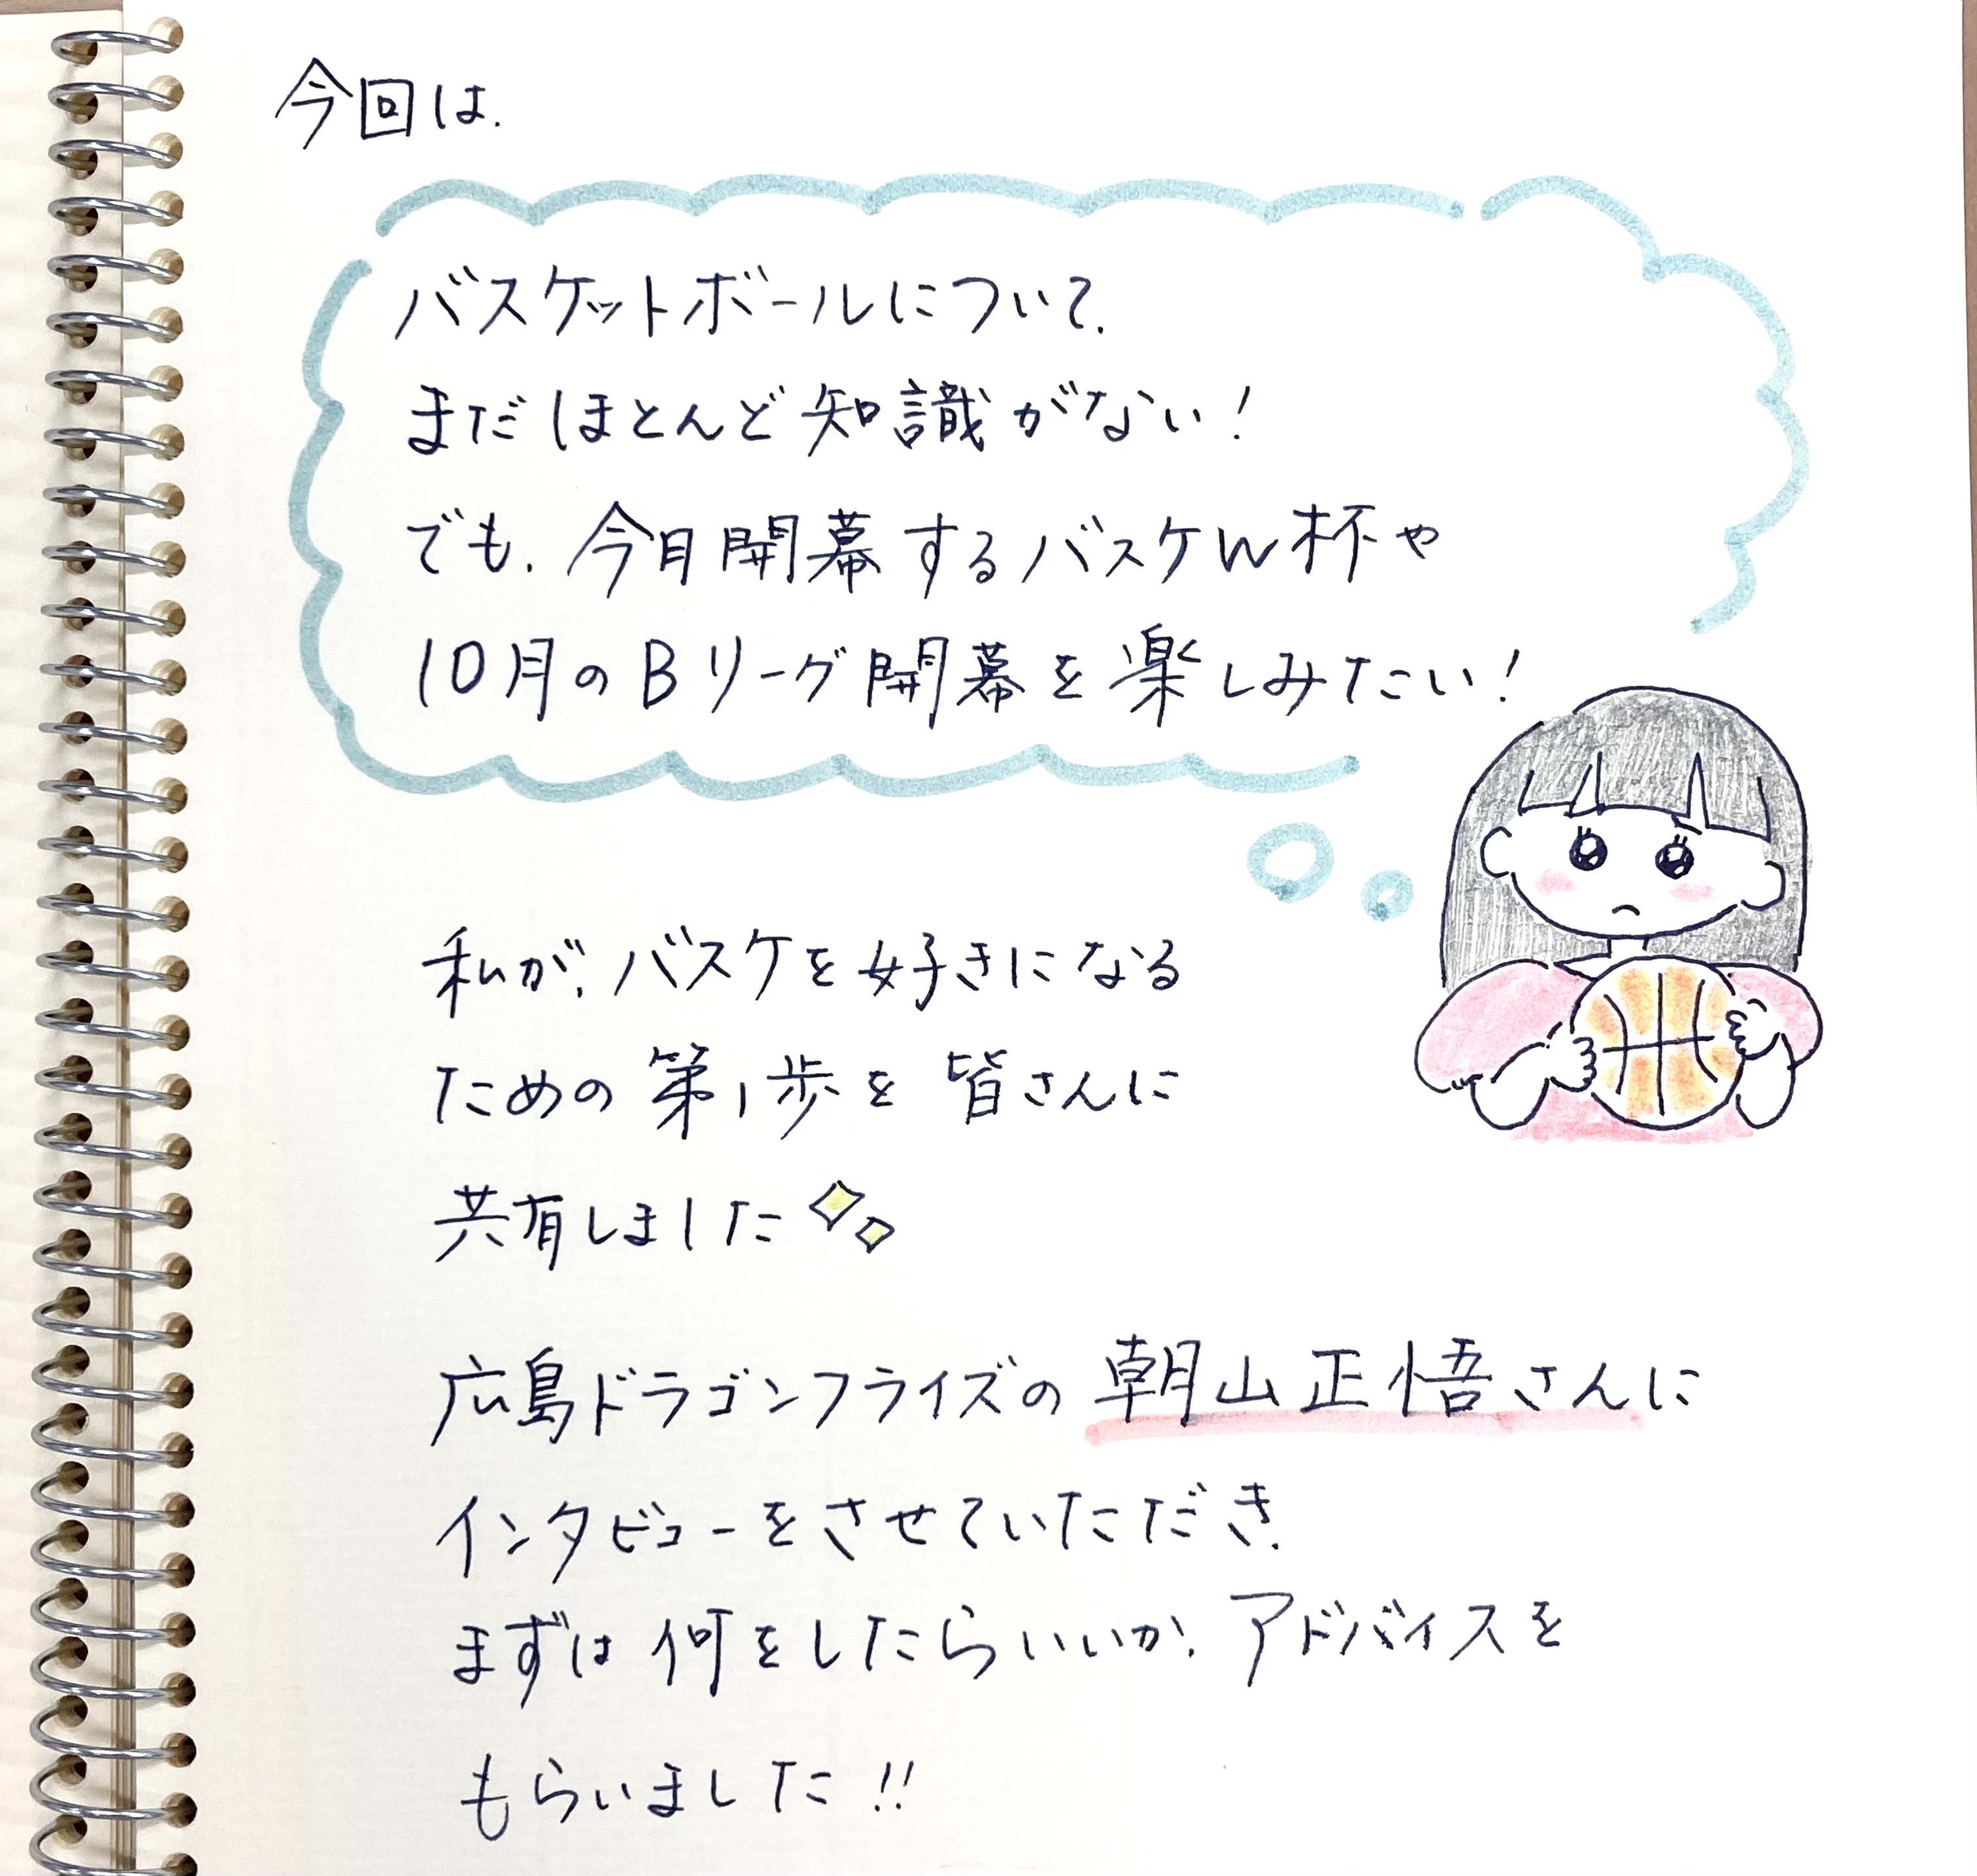 今回は、
バスケットボールについて、
まだほとんど知識がない！
でも、今月開幕するバスケW杯や
10月のBリーグ開幕を楽しみたい！
私が、バスケを好きになる
ための第1歩を皆さんに
共有しました
広島ドラゴンフライズの朝山正悟さんに
インタビューをさせていただき、
まずは何をしたらいいか、アドバイスを
もらいました!!